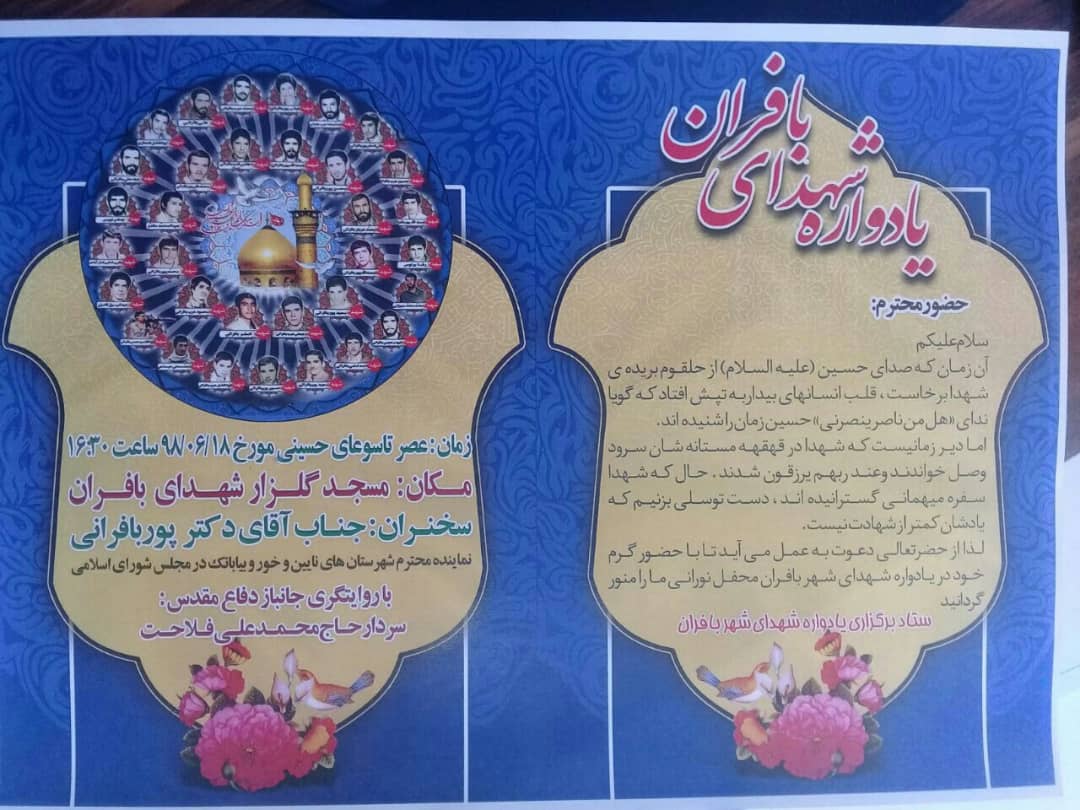 یادواره شهدای بافران
حضور محترم:
سلام علیکم
آن زمان که صدای حسین (علیه السلام) از حلقوم بریده ی
شهدا برخاست، قلب انسانهای بیدار به تپش افتاد که گویا
ندای «هل من ناصر ینصرنی» حسین زمان را شنیده اند.
اما دیر زمانیست که شهدا در قهقهه مستانه شان سرود
وصل خواندند و عند ربهم یرزقون شدند. حال که شهدا
سفره میهمانی گسترانیده اند، دست توسلی بزنیم که
یادشان کمتر از شهادت نیست.
لذا از حضرتعالی دعوت به عمل می آید تا با حضور گرم
خود در یادواره شهدای شهر بافران محفل نورانی ما را منور
گردانید
ستاد برگزاری یادواره شهدای شهر بافران
زمان: عصر تاسوعای حسینی مورخ ۹۸/۰۶/۱۸ ساعت ۱۶:۳۰
مکان: مسجد گلزار شهدای بافران
سخنران: جناب آقای دکتر پوربافرانی
نماینده محترم شهرستان های نایین و خور و بیابانک در مجلس شورای اسلامی
با روایتگری جانباز دفاع مقدس:
سردار حاج محمد علی فلاحت